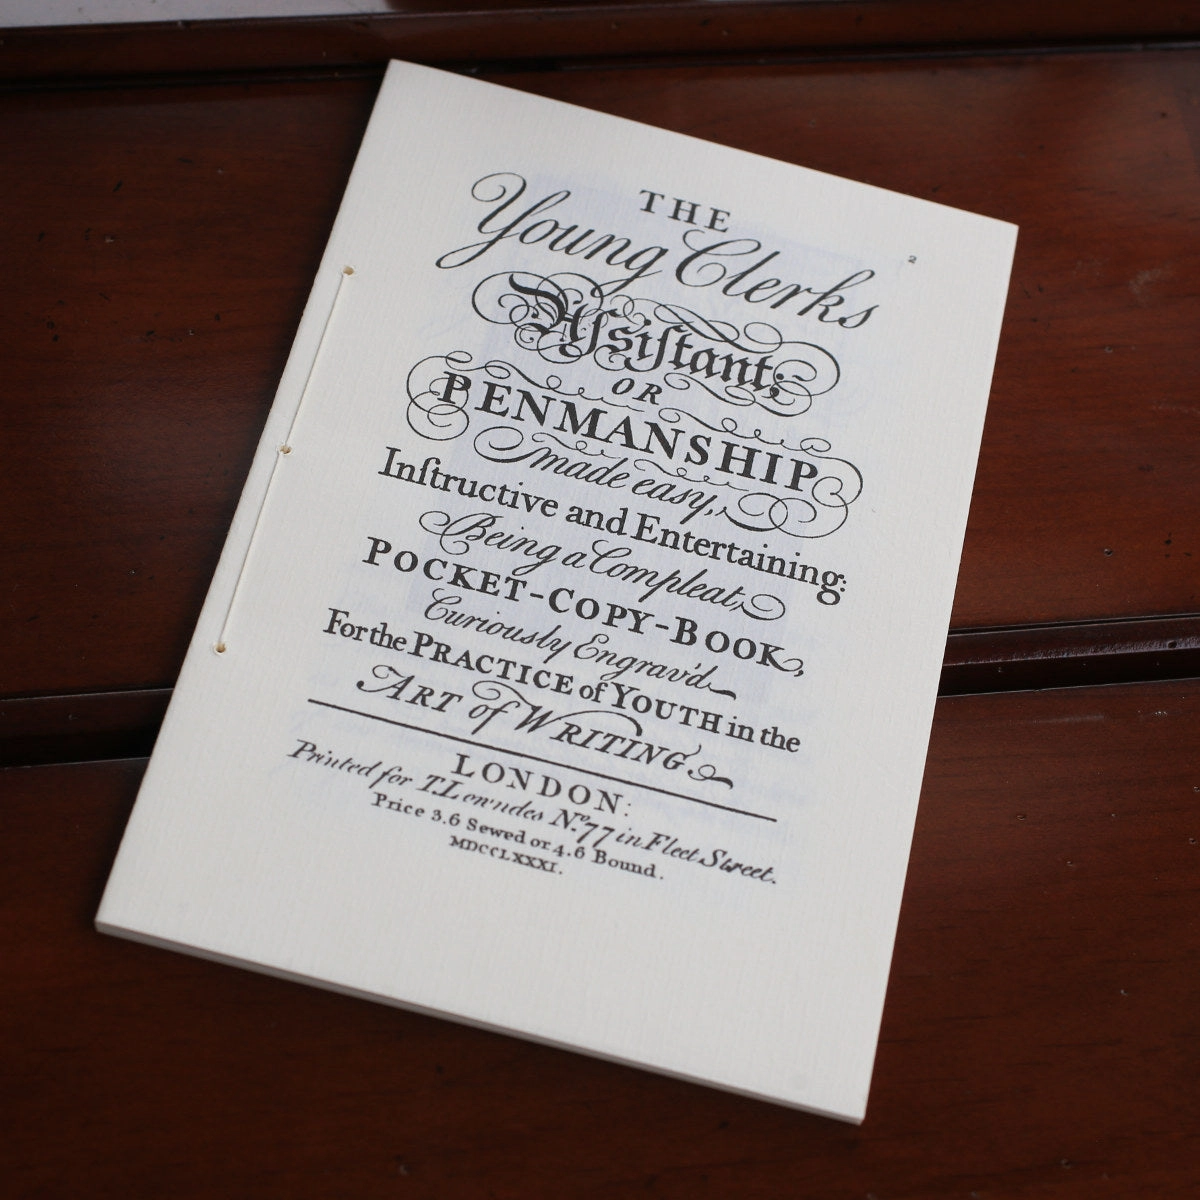 2
THE
Young Clerks
Aſsiſtant;
OR
PENMANSHIP
made easy,
Inſtructive and Entertaining:
Being a Compleat,
POCKET-COPY-BOOK,
Curiously Engrav'd
For the PRACTICE of YOUTH in the
ART of WRITING.
LONDON:
Printed for T. Lowndes No. 77 in Fleet Street.
Price 3.6 Sewed or 4.6 Bound.
MDCCLXXXI.